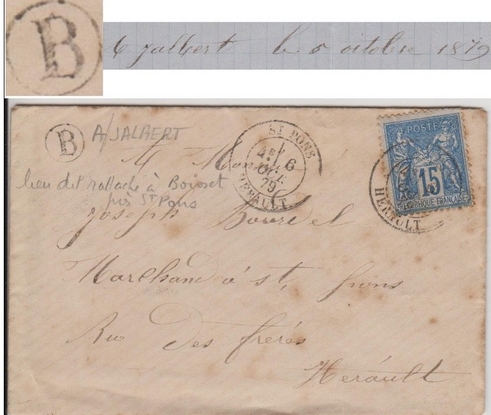 B
Jalbert le 5 octobre 1879
B
A/JALBERT
lieu dit rattaché à Boisset
près St Pons
ST PONS
6
OCT.
79
HERAULT
POSTE
15
REPUBLIQUE FRANÇAISE
HERAULT
M
Joseph
Marchand à st, pons
Rue des frères
Herault